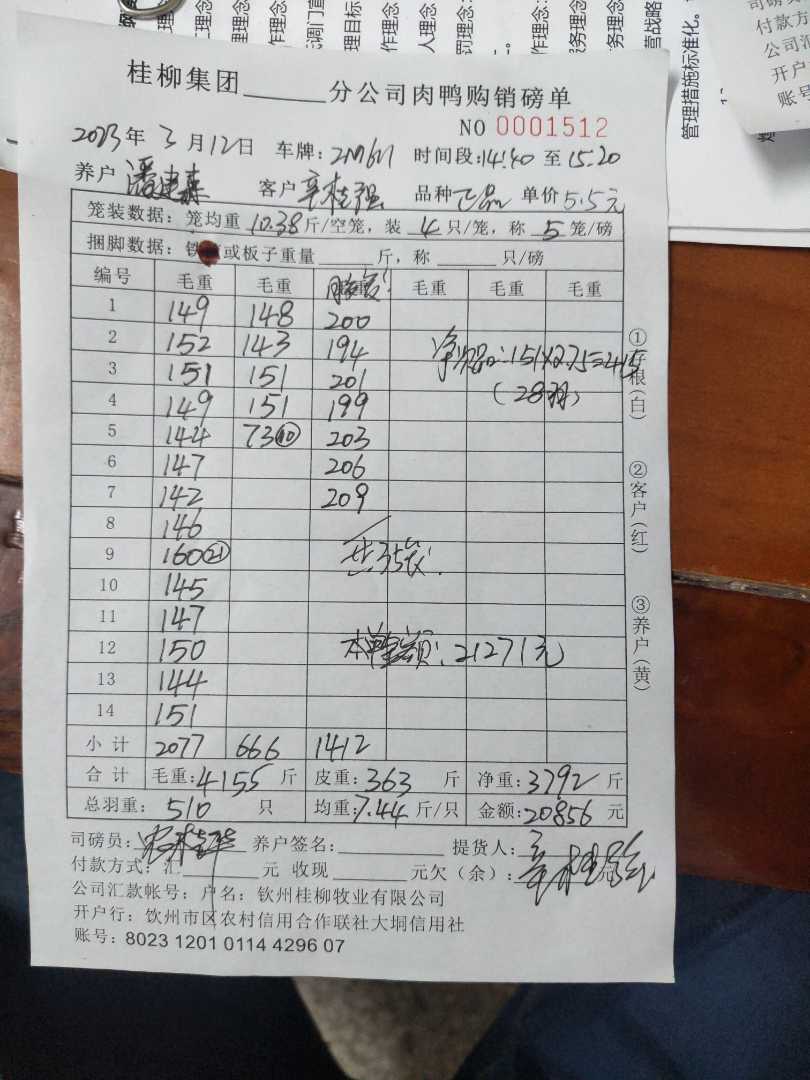 桂柳集团______分公司肉鸭购销磅单
NO 0001512
2023年3月12日 车牌: 时间段:14:40至15:20
养户 潘建森 客户 品种 正品 单价 5.5元
笼装数据：笼均重 10.38 斤/空笼，装 4 只/笼，称 5 笼/磅
捆脚数据：铁 或板子重量______斤，称______只/磅
编号 毛重 毛重 毛重 毛重 毛重
1 149 148 200
2 152 143 194 151×2.75=415
3 151 151 201
4 149 151 199 (28羽)
5 144 73⑩ 203
6 147 206
7 142 209
8 146
9 160㉑ 共35袋
10 145
11 147
12 150 本单金额：21271元
13 144
14 151
小计 2077 666 1412
合计 毛重:4155斤 皮重:363斤 净重:3792斤
总羽重: 510 只 均重:7.44斤/只 金额:20856元
司磅员: 养户签名: 提货人:
付款方式：汇______元 收现______元欠（余）:______元
公司汇款帐号：户名：钦州桂柳牧业有限公司
开户行：饮州市区农村信用合作联社大垌信用社
账号：8023 1201 0114 4296 07
①存根(白)
②客户(红)
③养户(黄)
管理措施标准化。
营战略
付款方
公司汇
开户
账号